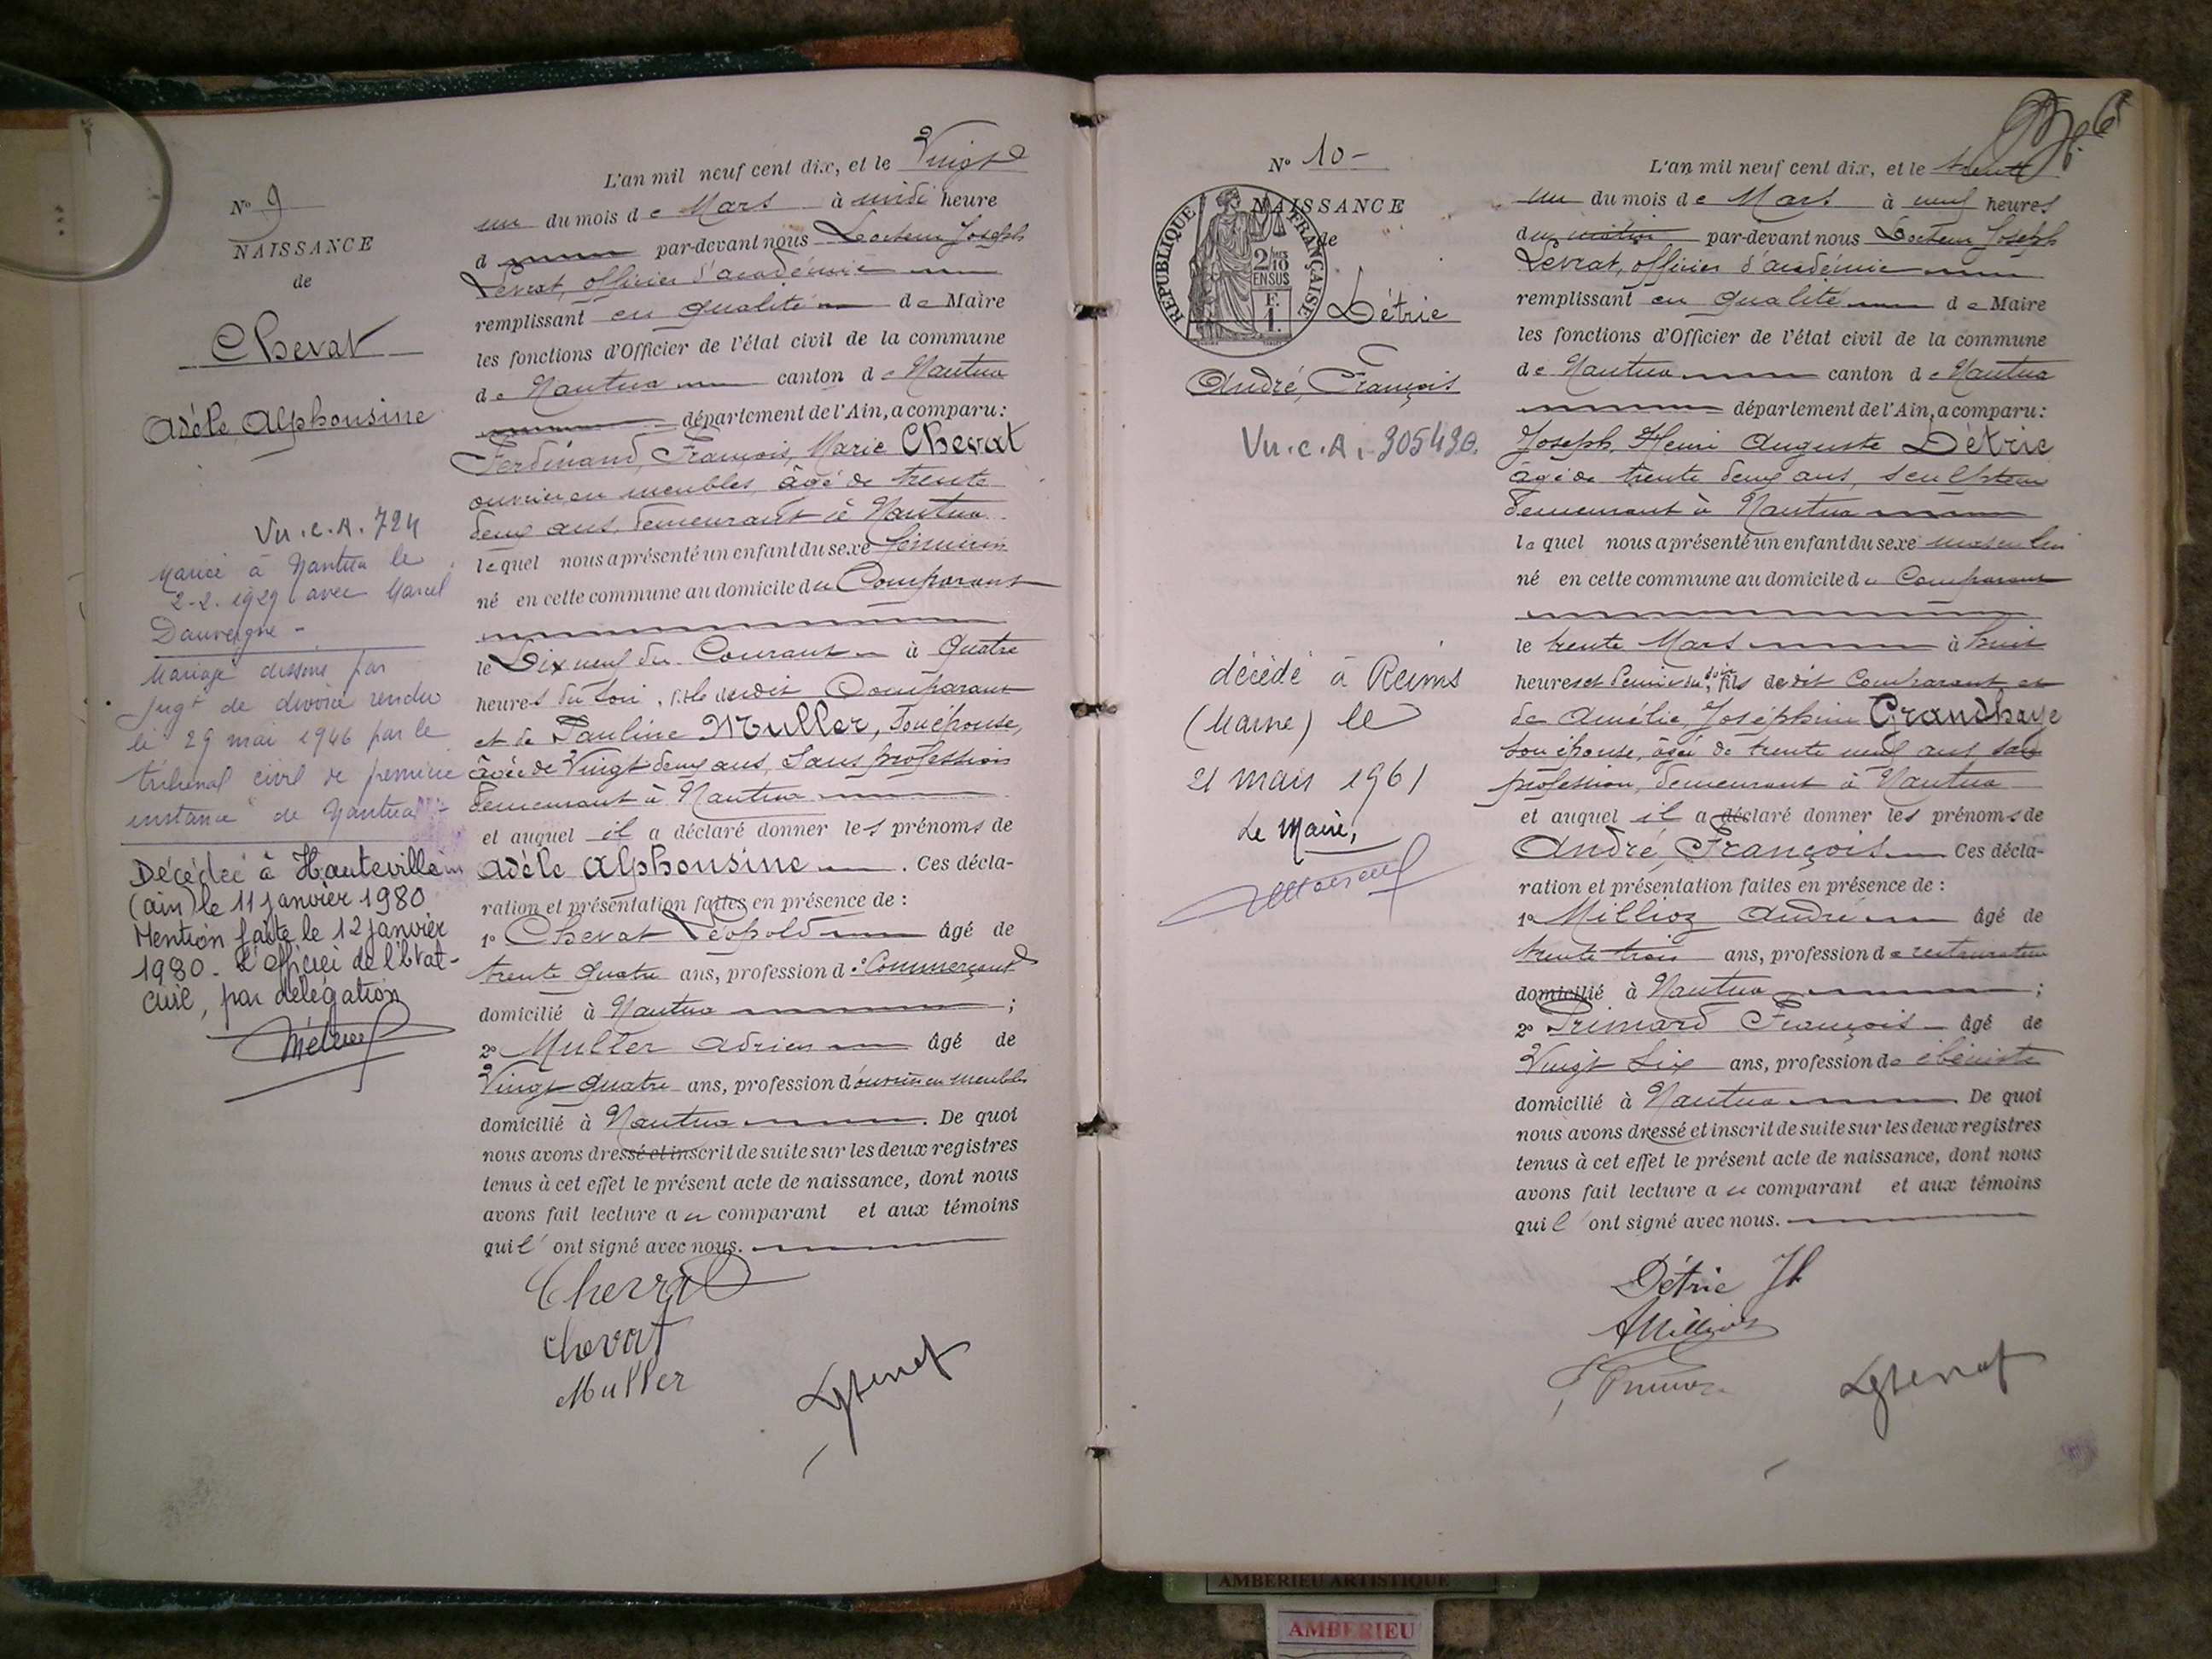 N° 9
NAISSANCE
de
Chevat
Adèle, Alphonsine
Vu. c. A. 724
Mariée à Nantua le
2-2. 1929 avec Marcel
Dauvergne -
Mariage dissous par
jugt de divorce rendu
le 29 mai 1946 par le
tribunal civil de première
instance de Nantua
Décédée à Hauteville
(ain) le 11 janvier 1980
Mention faite le 12 janvier
1980 - L'officier de l'Etat-
civil, par délégation
L'an mil neuf cent dix, et le Vingt
un du mois de Mars à midi heure
d par-devant nous Docteur Joseph
Levrat, officier d'académie
remplissant en qualité de Maire
les fonctions d'Officier de l'état civil de la commune
de Nantua canton de Nantua
département de l'Ain, a comparu :
Ferdinand, François, Marie Chevat
ouvrier en meubles, âgé de trente
deux ans, demeurant à Nantua
lequel nous a présenté un enfant du sexe féminin
né en cette commune au domicile du Comparant
le Dix neuf du Courant à Quatre
heures du soir, Comparant
et de Pauline Muller, son épouse,
âgée de Vingt deux ans, Sans profession
demeurant à Nantua
et auquel il a déclaré donner les prénoms de
Adèle Alphonsine . Ces décla-
ration et présentation faites en présence de :
1° Chevat Léopold âgé de
trente quatre ans, profession de Commerçant
domicilié à Nantua ;
2° Muller Adrien âgé de
Vingt quatre ans, profession d'ouvrier en meubles
domicilié à Nantua . De quoi
nous avons dressé et inscrit de suite sur les deux registres
tenus à cet effet le présent acte de naissance, dont nous
avons fait lecture au comparant et aux témoins
qui l'ont signé avec nous.
Chevat
Chevat
Muller
N° 10 -
NAISSANCE
de
REPUBLIQUE FRANÇAISE
2/10
EN SUS
F.
1.
Détrie
André, François
Vu. c. A. 305430.
décédé à Reims
(Marne) le
21 mars 1961
Le Maire,
6
L'an mil neuf cent dix, et le trente
un du mois de Mars à neuf heures
du matin par-devant nous Docteur Joseph
Levrat, officier d'académie
remplissant en qualité de Maire
les fonctions d'Officier de l'état civil de la commune
de Nantua canton de Nantua
département de l'Ain, a comparu :
Joseph, Henri Auguste Détrie
âgé de trente deux ans, sculpteur
demeurant à Nantua
lequel nous a présenté un enfant du sexe masculin
né en cette commune au domicile du Comparant
le trente Mars à huit
heures et demie du soir, fils dudit Comparant et
de Amélie, Joséphine Grandhaye
son épouse, âgée de trente neuf ans sans
profession, demeurant à Nantua
et auquel il a déclaré donner les prénoms de
André, François Ces décla-
ration et présentation faites en présence de :
1° Millioz André âgé de
trente trois ans, profession de restaurateur
domicilié à Nantua ;
2° Primard François âgé de
Vingt six ans, profession de ébéniste
domicilié à Nantua De quoi
nous avons dressé et inscrit de suite sur les deux registres
tenus à cet effet le présent acte de naissance, dont nous
avons fait lecture au comparant et aux témoins
qui l'ont signé avec nous.
Détrie Jh
AMillioz
AMBERIEU ARTISTIQUE
AMBERIEU